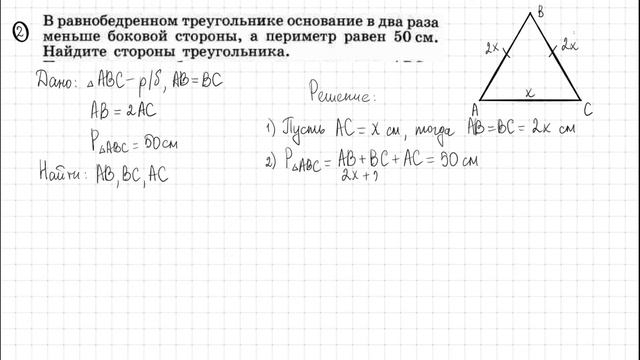 2 В равнобедренном треугольнике основание в два раза
меньше боковой стороны, а периметр равен 50 см.
Найдите стороны треугольника.
Дано: △ABC - р/б, AB = BC
AB = 2AC
P△ABC = 50 см
Найти: AB, BC, AC
Решение:
1) Пусть AC = x см, тогда AB = BC = 2x см
2) P△ABC = AB + BC + AC = 50 см
2x +
B
2x 2x
x
A C